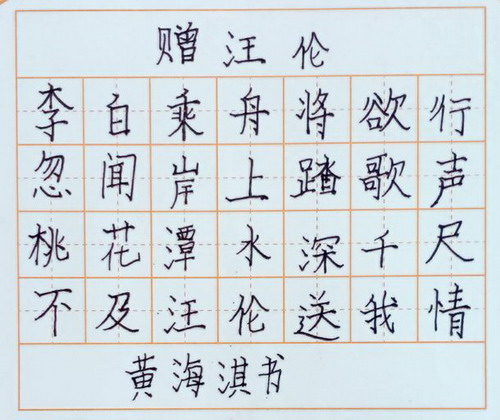 赠汪伦
李白乘舟将欲行
忽闻岸上踏歌声
桃花潭水深千尺
不及汪伦送我情
黄海淇书